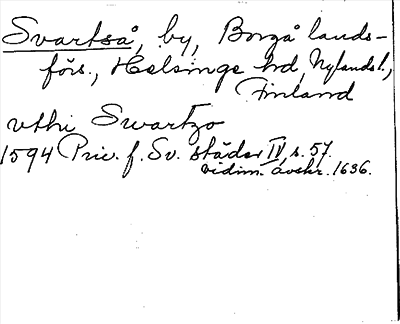 Svartså, by, Borgå lands-
förs., Helsinge hd, Nylands l.,
Finland
vthi Swartzo
1594 Priv. f. Sv. städer IV, s. 57.
vidim. avskr. 1636.